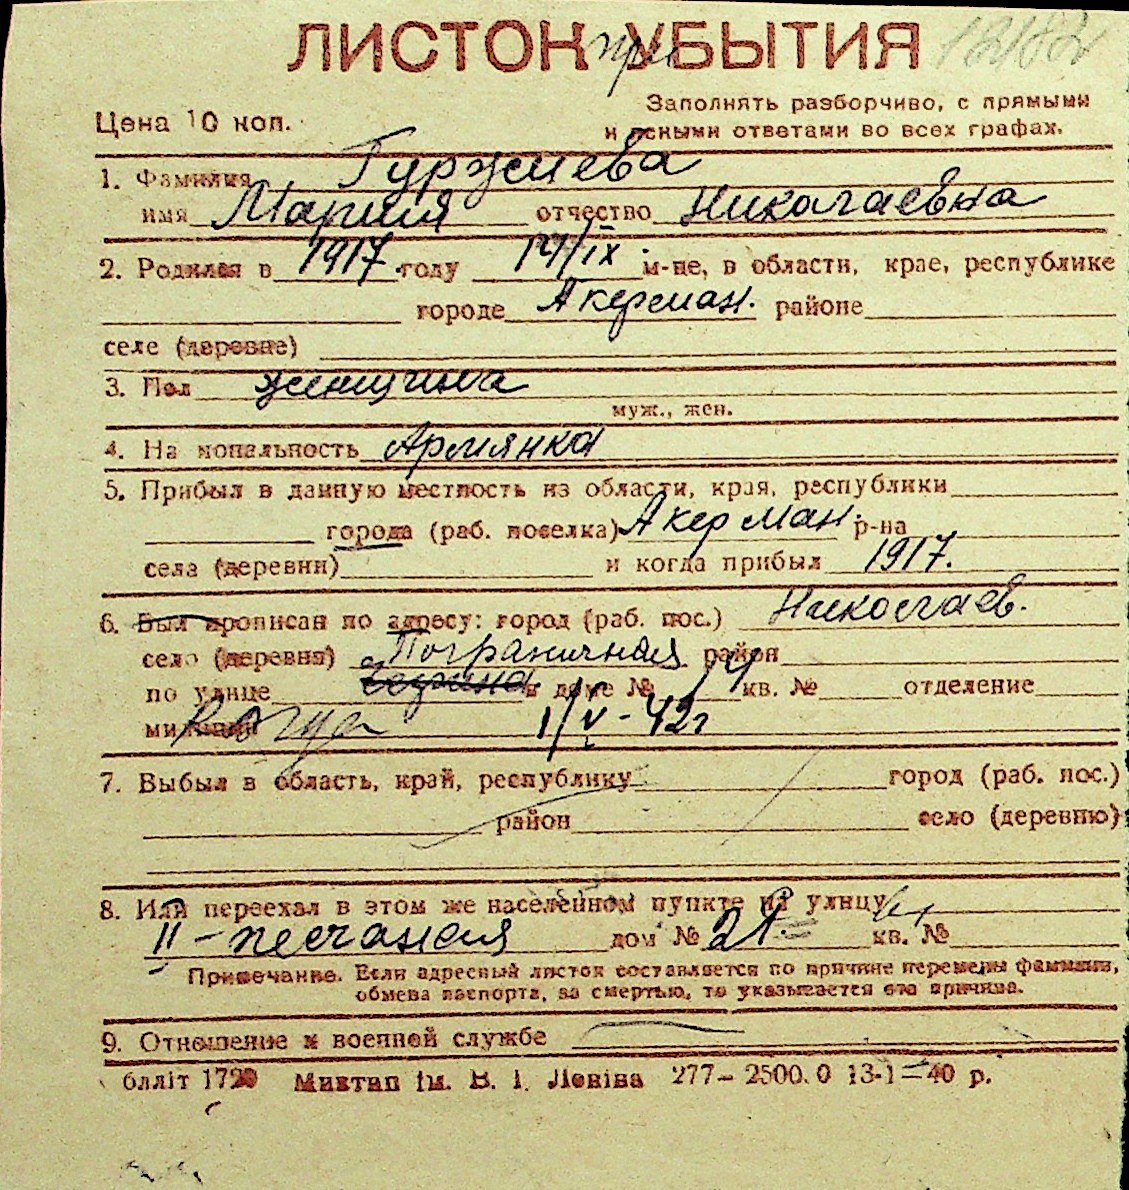 ЛИСТОК при УБЫТИЯ
Цена 10 коп.
Заполнять разборчиво, с прямыми
и ясными ответами во всех графах.
1. Фамилия Гуржиева
имя Мария отчество Николаевна
2. Родился в 1917 году 14/IX м-це, в области, крае, республике
городе Акерман. районе
селе (деревне)
3. Пол женщина
муж., жен.
4. Национальность Армянка
5. Прибыл в данную местность из области, края, республики
города (раб. поселка) Акерман. р-на
села (деревни) и когда прибыл 1917.
6. Был прописан по адресу: город (раб. пос.) Николаев.
село (деревня) Пограничная район
по улице в доме № 14 кв. № отделение
милиции Когда 1/V-42г
7. Выбыл в область, край, республику город (раб. пос.)
район село (деревню)
8. Или переехал в этом же населенном пункте на улицу
II-песчаная дом № 21. кв. №
Примечание. Если адресный листок составляется по причине перемены фамилии,
обмена паспорта, за смертью, то указывается эта причина.
9. Отношение к военной службе
бллiт 1720 Миктап iм. В. I. Ленiна 277—2500.0 13-1—40 р.